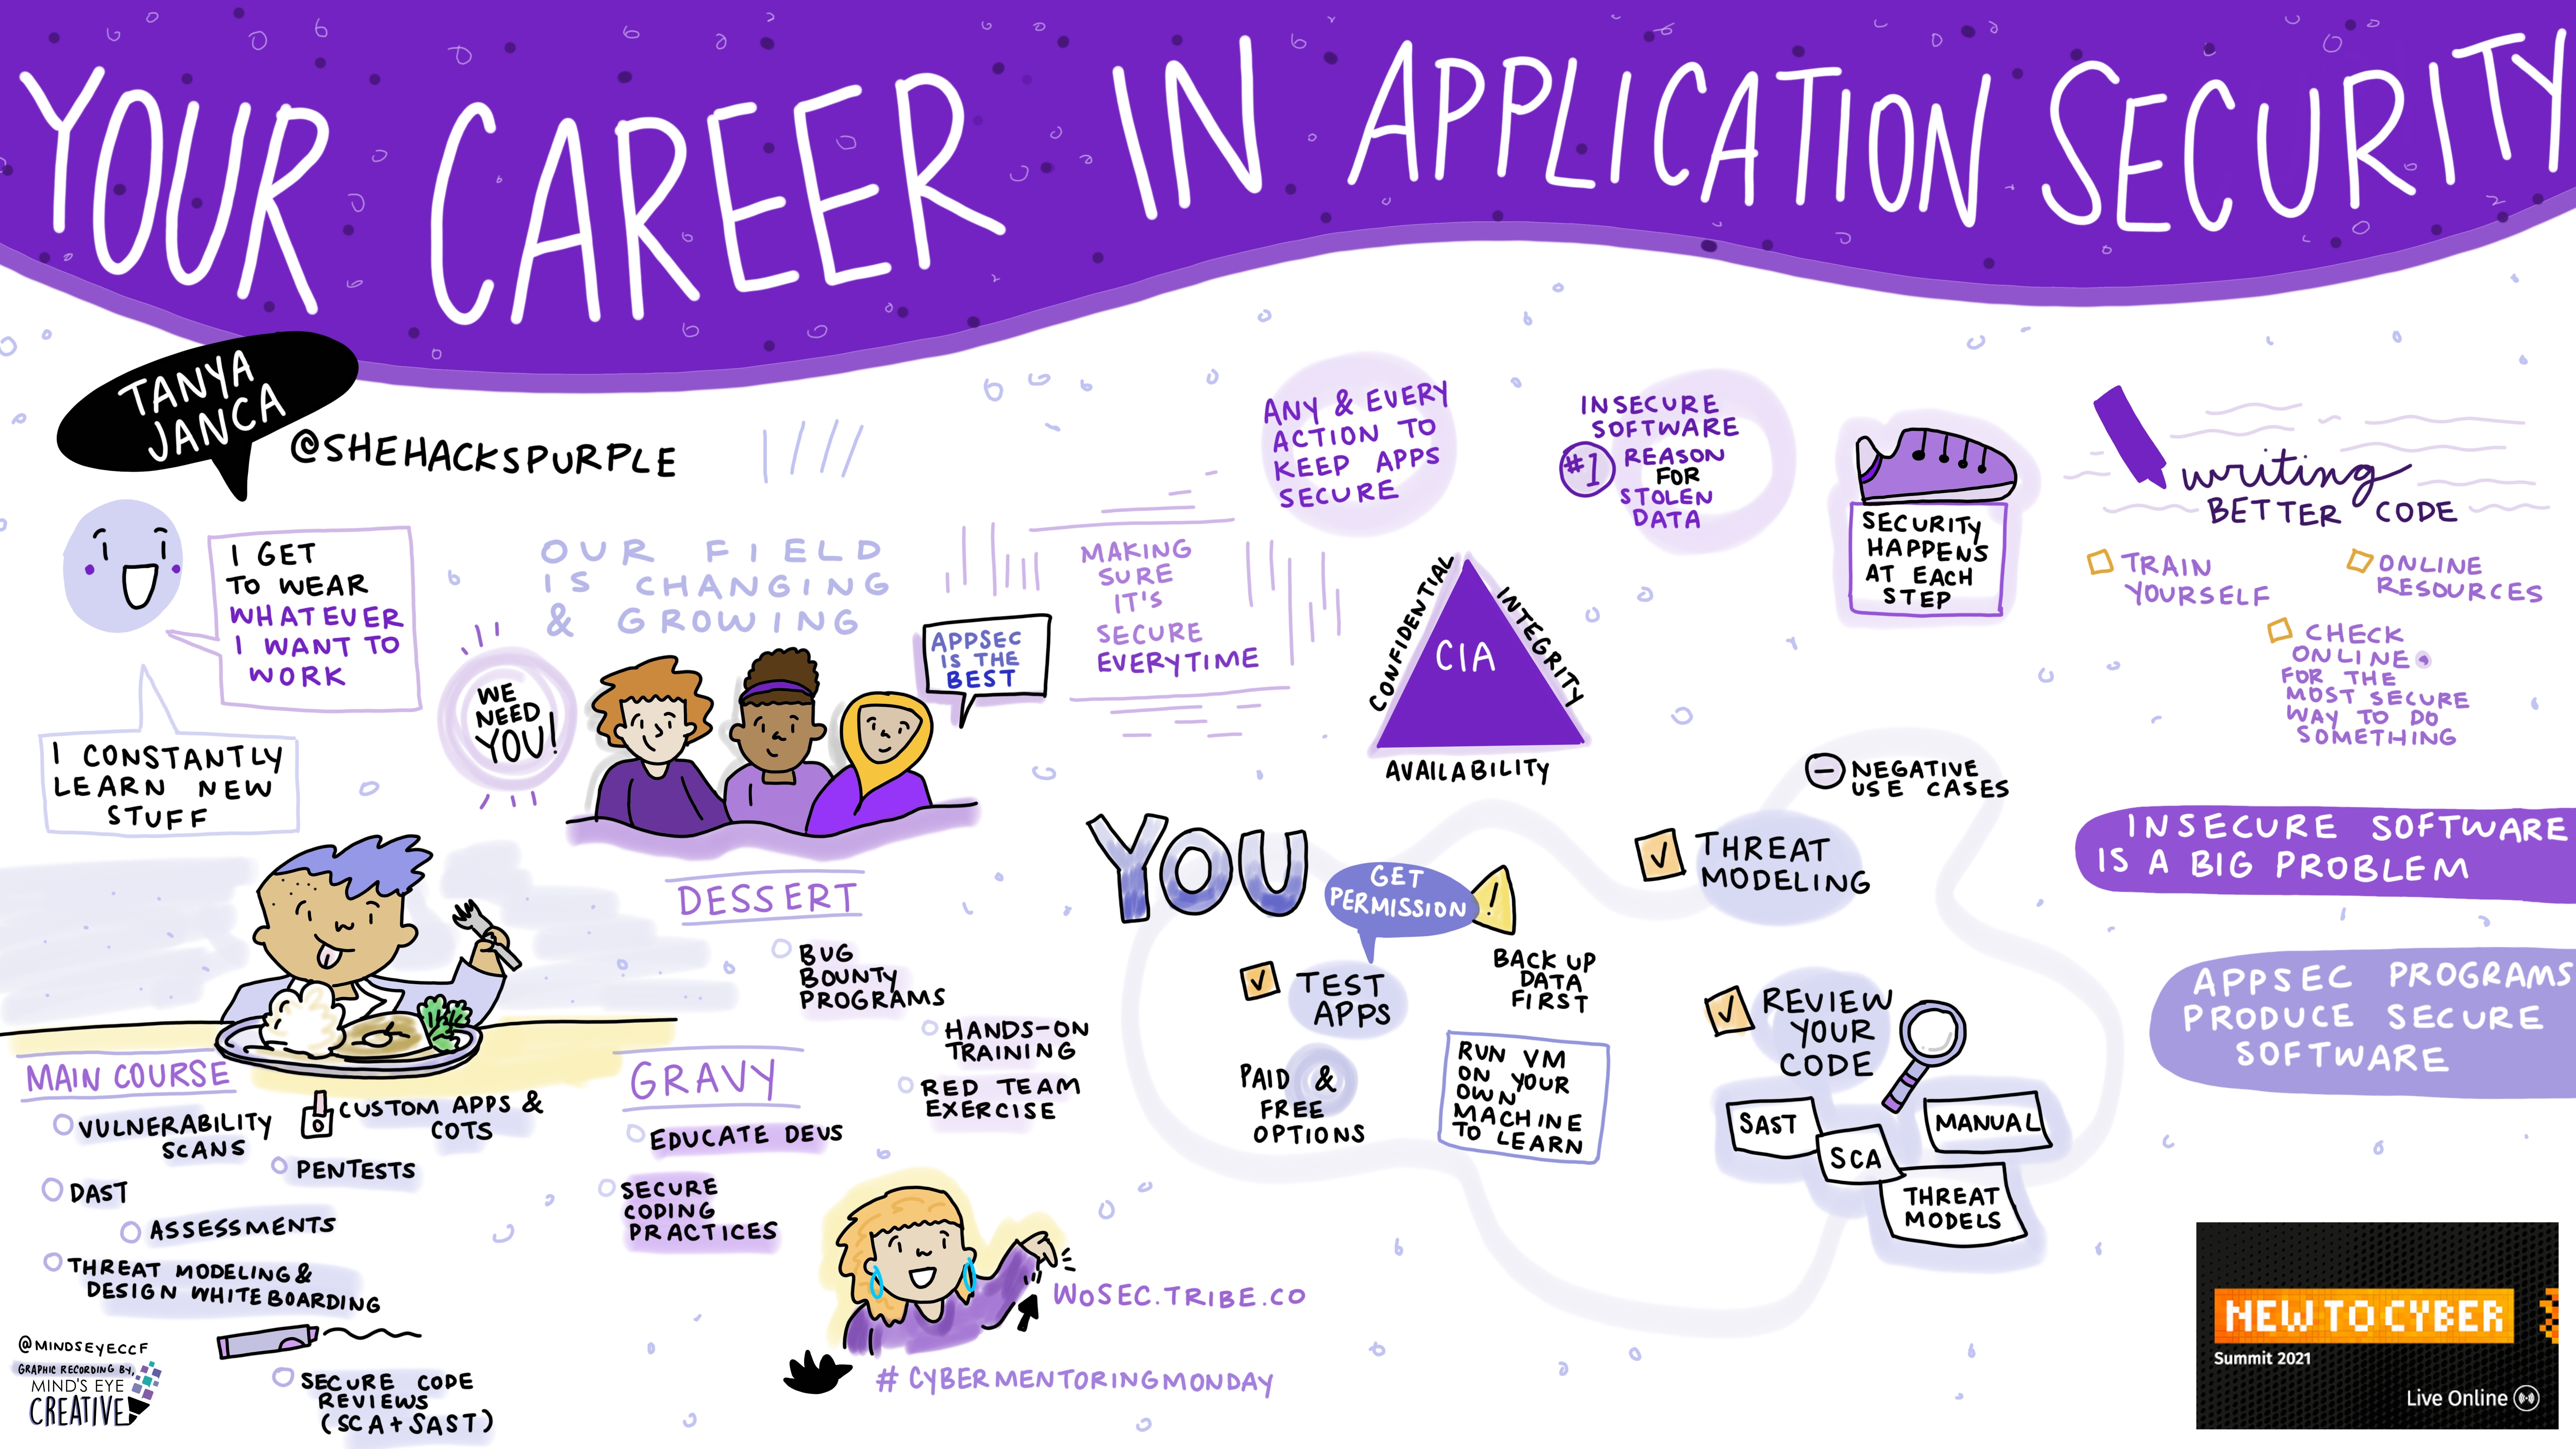 YOUR CAREER IN APPLICATION SECURITY
TANYA
JANCA
@SHEHACKSPURPLE
I GET
TO WEAR
WHATEVER
I WANT TO
WORK
I CONSTANTLY
LEARN NEW
STUFF
OUR FIELD
IS CHANGING
& GROWING
WE
NEED
YOU!
APPSEC
IS THE
BEST
MAKING
SURE
IT'S
SECURE
EVERYTIME
ANY & EVERY
ACTION TO
KEEP APPS
SECURE
INSECURE
SOFTWARE
#1 REASON
FOR
STOLEN
DATA
CONFIDENTIAL
INTEGRITY
CIA
AVAILABILITY
SECURITY
HAPPENS
AT EACH
STEP
writing
BETTER CODE
TRAIN
YOURSELF
ONLINE
RESOURCES
CHECK
ONLINE
FOR THE
MOST SECURE
WAY TO DO
SOMETHING
INSECURE SOFTWARE
IS A BIG PROBLEM
APPSEC PROGRAMS
PRODUCE SECURE
SOFTWARE
MAIN COURSE
VULNERABILITY
SCANS
CUSTOM APPS &
COTS
PENTESTS
DAST
ASSESSMENTS
THREAT MODELING &
DESIGN WHITEBOARDING
SECURE CODE
REVIEWS
(SCA + SAST)
DESSERT
BUG
BOUNTY
PROGRAMS
HANDS-ON
TRAINING
RED TEAM
EXERCISE
GRAVY
EDUCATE DEVS
SECURE
CODING
PRACTICES
WOSEC.TRIBE.CO
# CYBERMENTORINGMONDAY
YOU
GET
PERMISSION
!
TEST
APPS
BACK UP
DATA
FIRST
PAID &
FREE
OPTIONS
RUN VM
ON YOUR
OWN
MACHINE
TO LEARN
NEGATIVE
USE CASES
THREAT
MODELING
REVIEW
YOUR
CODE
SAST
SCA
MANUAL
THREAT
MODELS
@MINDSEYECCF
GRAPHIC RECORDING BY,
MIND'S EYE
CREATIVE
NEW TO CYBER
Summit 2021
Live Online